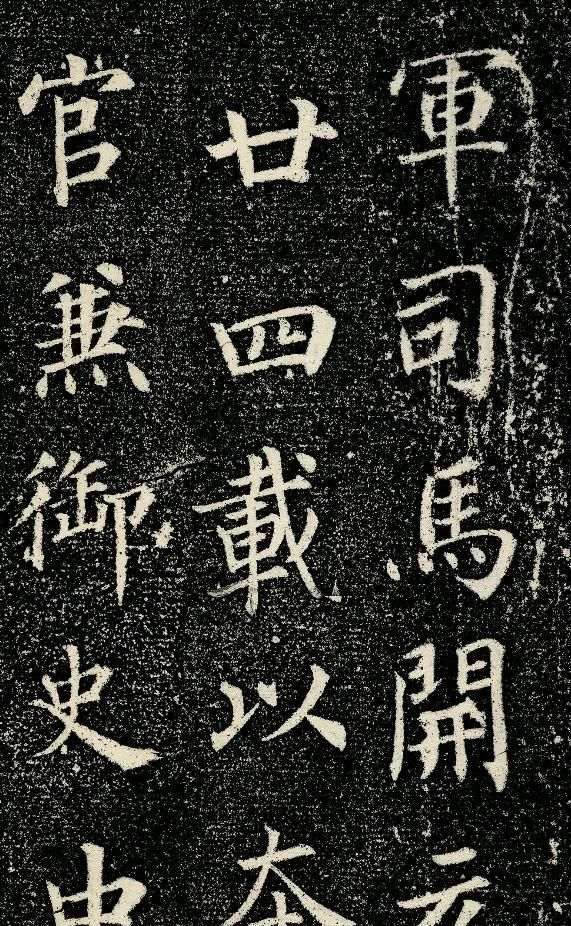 軍司馬開元
廿四載以本
官兼御史中